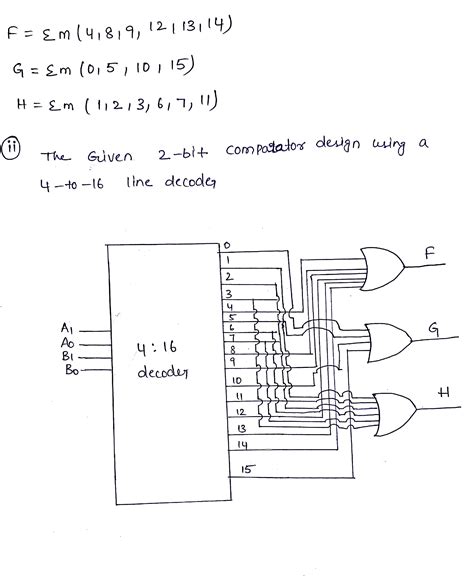 F = Σm (4,8,9, 12,13,14)
G = Σm (0,5, 10, 15)
H = Σm (1,2,3,6,7,11)
ii The Given 2-bit compatator design using a
4-to-16 line decoder
0
1
2
3
4
5
6
7
8
9
10
11
12
13
14
15
A1
A0
B1
B0
4:16
decoder
F
G
H